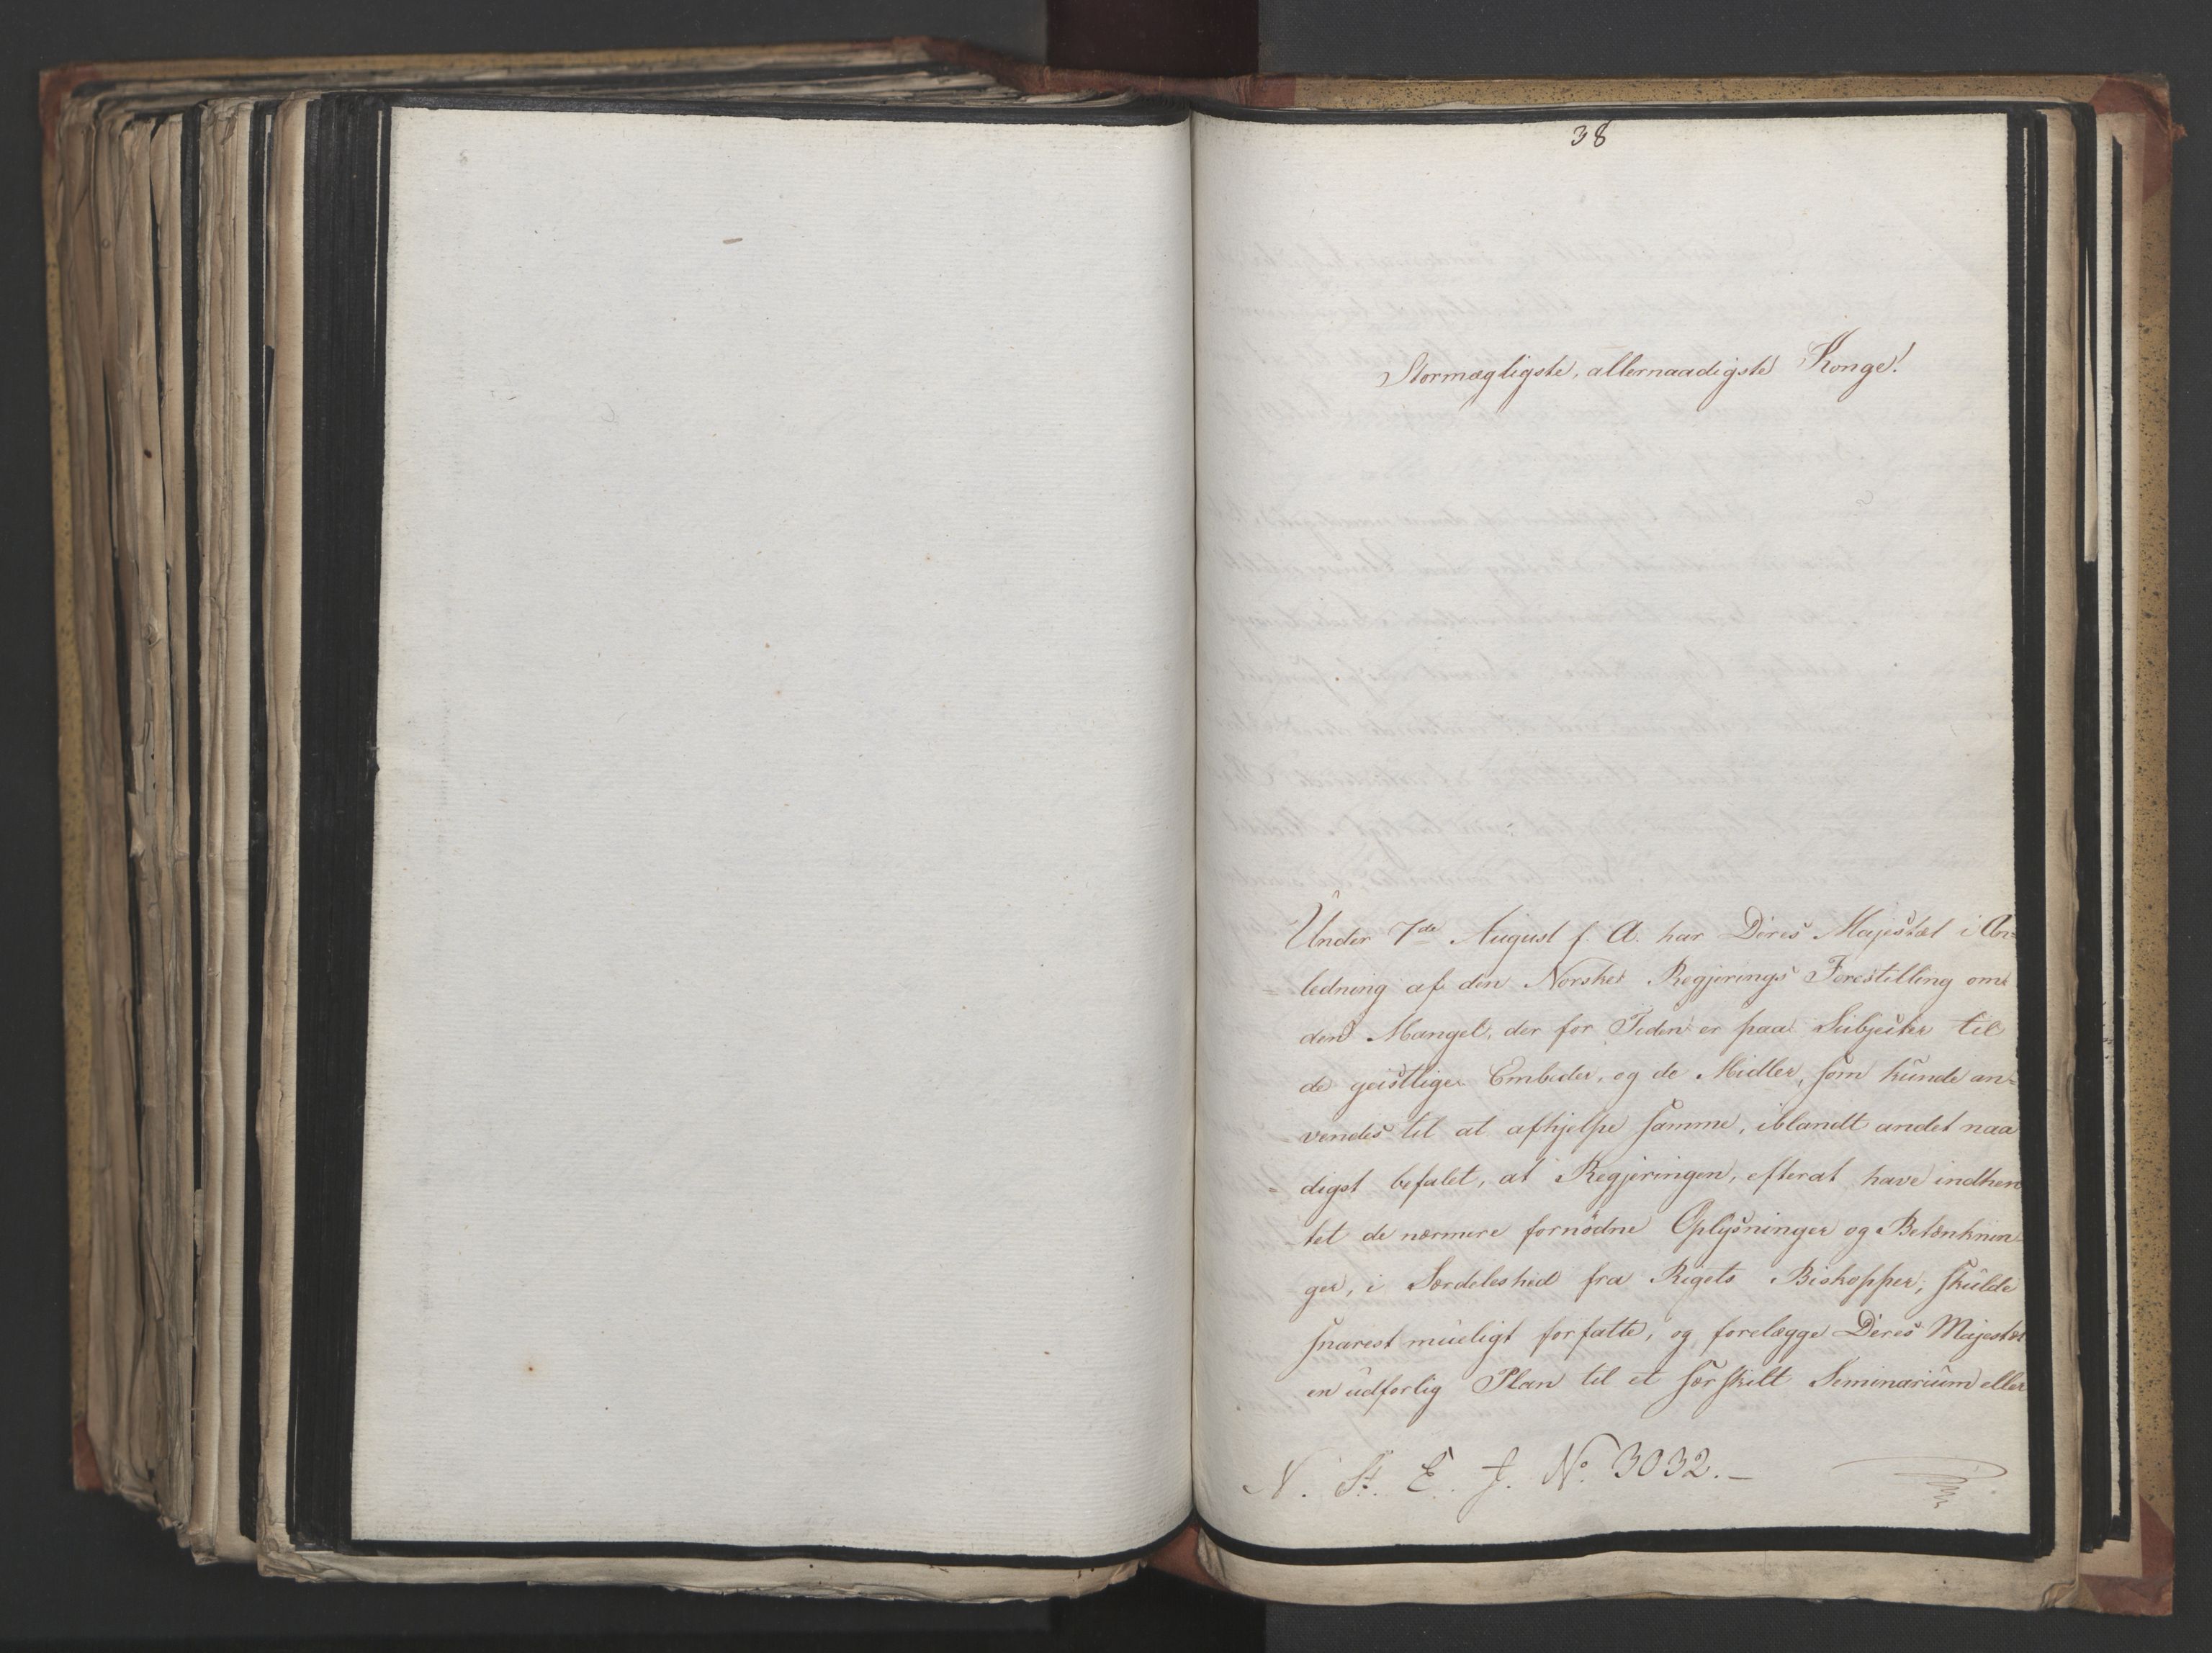 38
Stormægtigste, allernaadigste Konge!
Under 7de August f. A. har Deres Majestæt i An=
=ledning af den Norske Regjerings Forestilling om
den Mangel, der for Tiden er paa Subjecter til
de geistlige Embeder, og de Midler, som kunde an=
vendes til at afhjelpe samme, iblandt andet naa
=digst befalet, at Regjeringen, efterat have indhen
tet de nærmere fornødne Oplysninger og Betænknin
ger, i Særdeleshed fra Rigets Biskopper, skulde
snarest mueligt forfatte, og forelægge Deres Majestæt
en udførlig Plan til et særskilt Seminarium eller
N. St. E. J. No. 3032.-